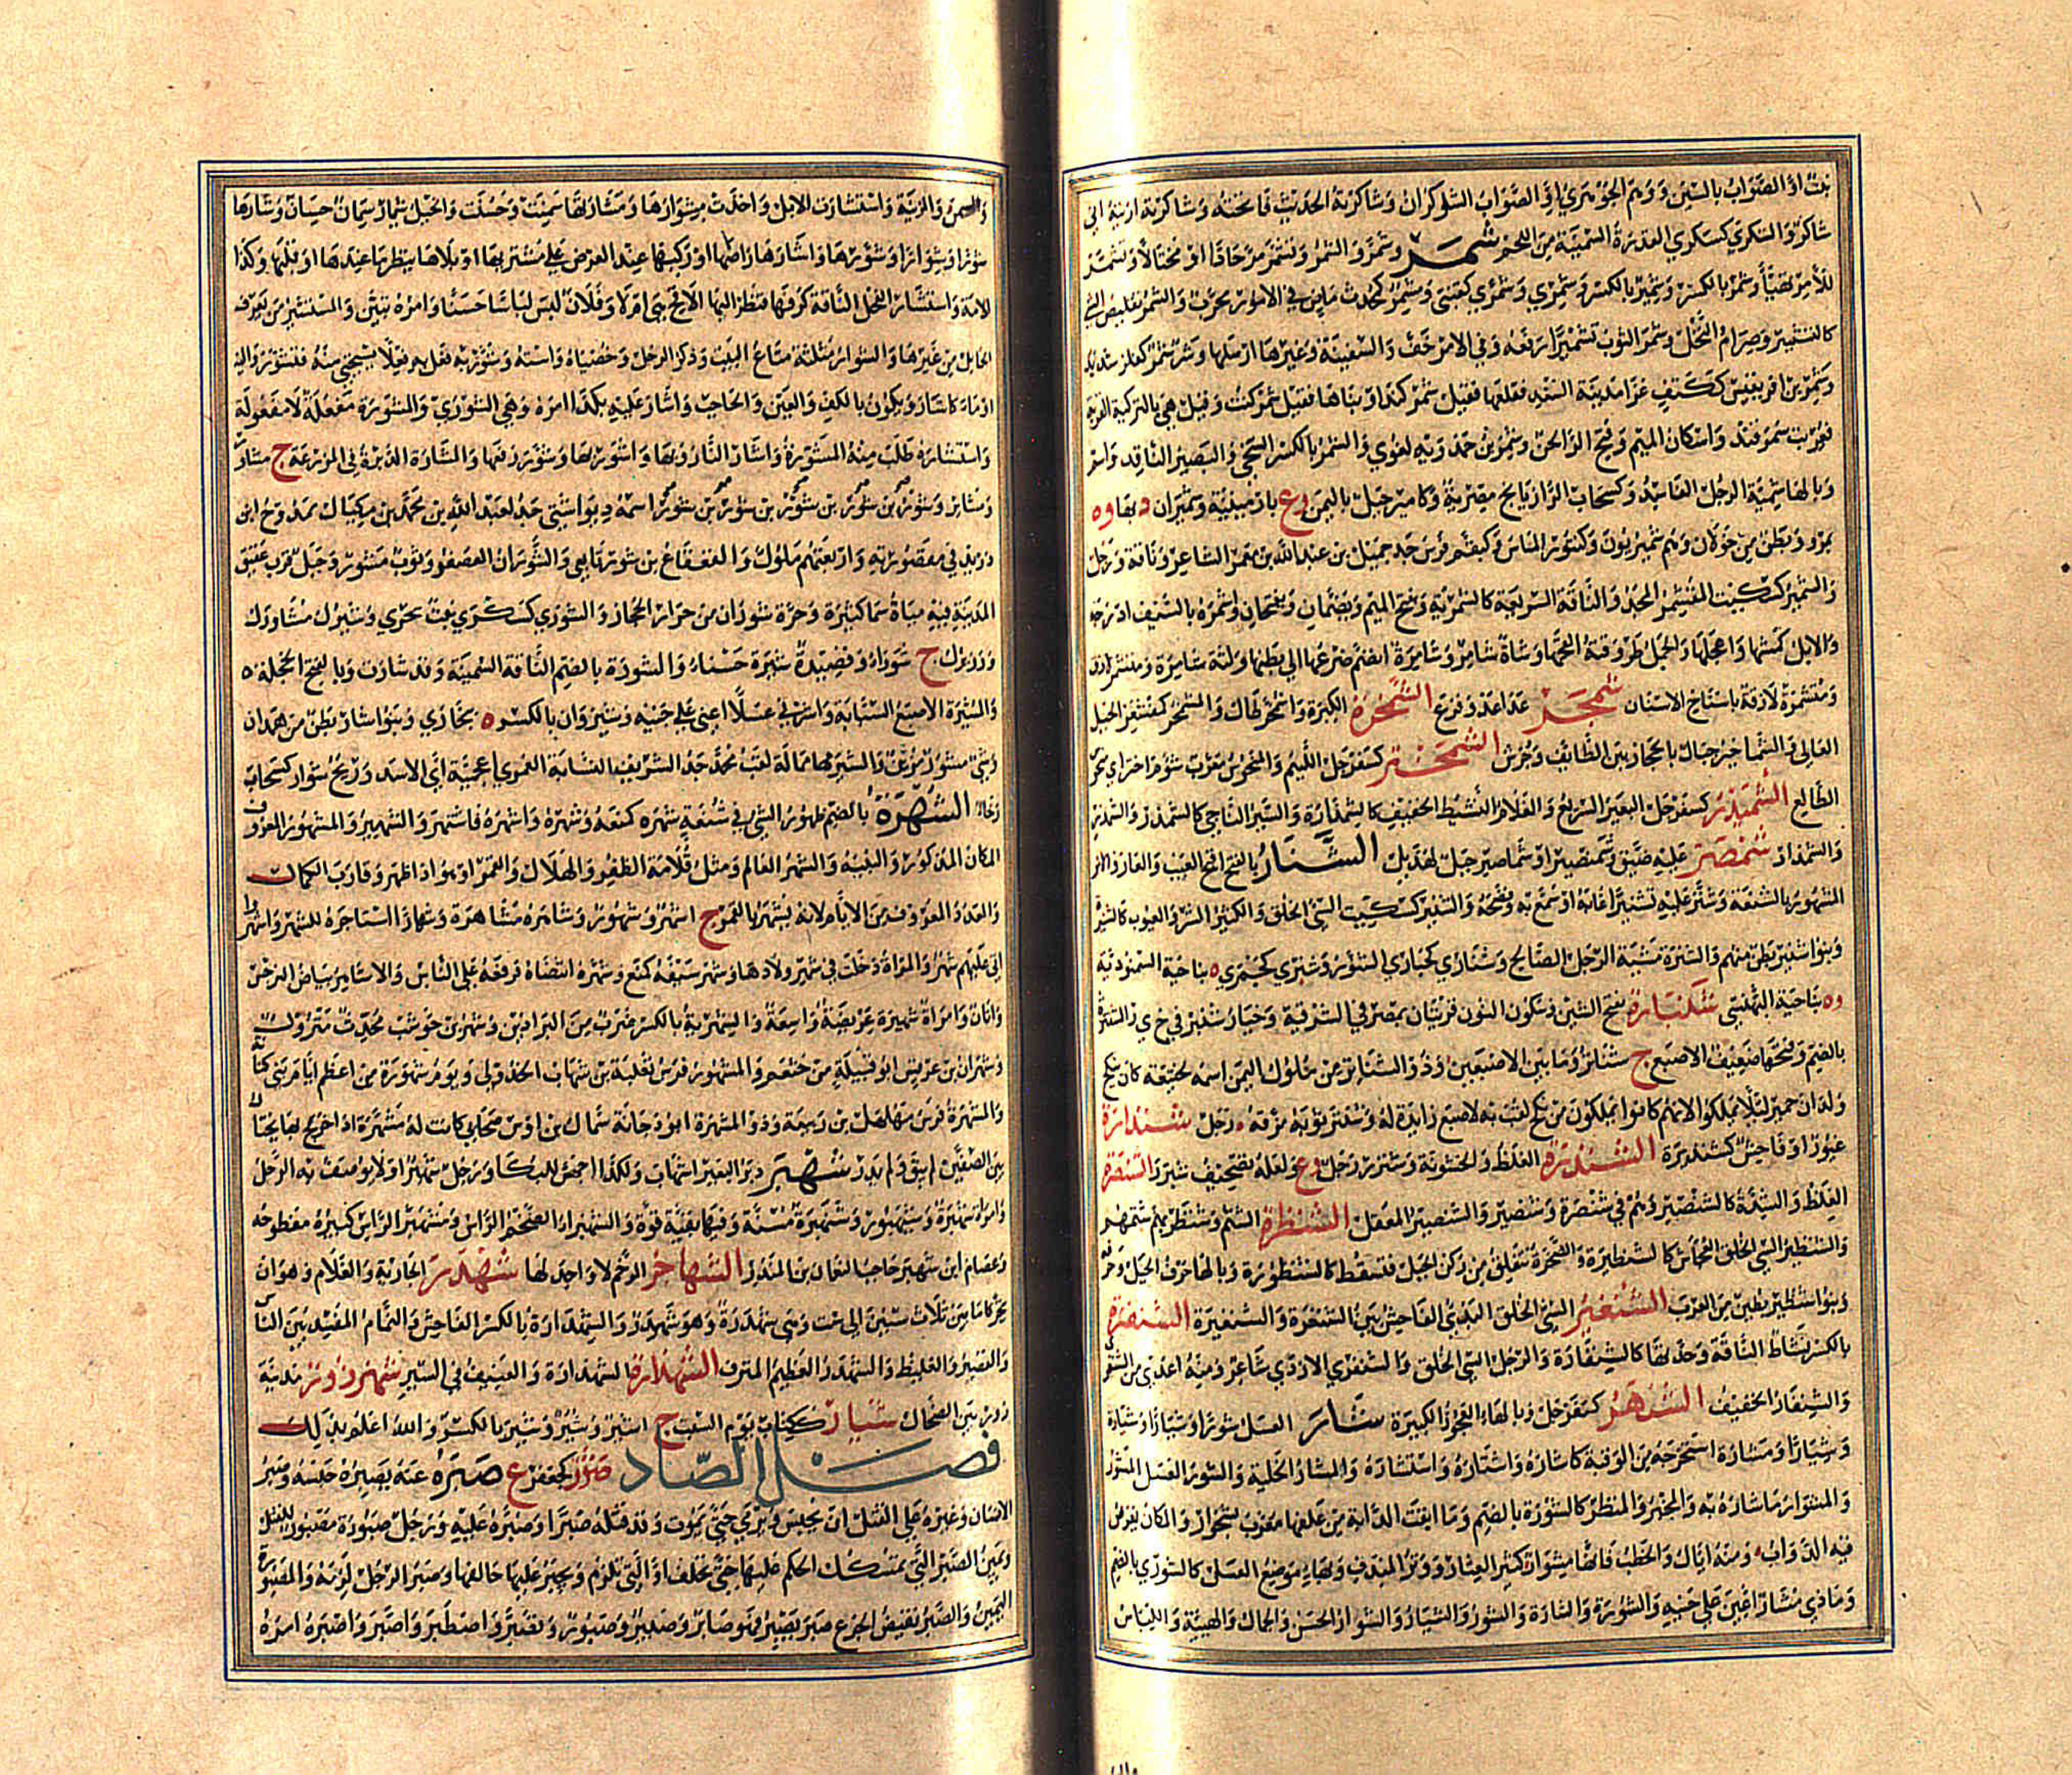 نبت او الصواب بالسين ووهم الجوهري او الصواب الشوكران وشاكرته الحديث فاتحته وشاكرته اريته اني
شاكر والشكري كسكري الفدرة السمينة من اللحم شمر وشمر وانشمر وتشمر مر جادا او مختالا وتشمر
للأمر تهيأ وشمر بالكسر وشمير بالكسر وشمري وشمري كقنبي وشمر كمحدث ماض في الامور مجرب والشمر تقليص الشئ
كالتشمير وصرام النخل وشمر الثوب تشميرا رفعه وفي الامر خف والسفينة وغيرها ارسلها وشر شمر كفلز شديد
وشمر بن افريقيس ككتف غزا مدينة السغد فقلعها فقيل شمركند او بناها فقيل شمركنت وهي بالتركية القرية
فعربت سمرقند واسكان الميم وفتح الرا لحن وشمر بن حمدويه لغوي والشمر بالكسر السخي والبصير الناقد واسم
وبالهاء مشية الرجل الفاسد وكسحاب الرازيانج مصرية وكامير جبل باليمن وع بارمينية وشميران د بها وة
بمرو وبطن من خولان وهم شميريون وكتنور الماس وكبقم فرس جد جميل بن عبد الله بن معمر الشاعر وناقة ورجل
والشمير كسكيت المشمر المجد والناقة السريعة كالشمرية وفتح الميم وبضمان وبفتحان واشمره بالسيف ادرجه
والابل كمشها واعجلها والجمل طروقته القحها وشاة شامر وشامرة انضم ضرعها الى بطنها ولثة شامرة ومتشمرة
ومنشمرة لازقة باسناخ الاسنان شمجر عدا عدو فزع الشمخرة الكبرة واشمخر طال والمشمخر كمقشعر الجبل
العالي والشماخر جبال بالحجاز بين الطائف وجرش الشمختر كغضنفر كسفرجل اللئيم والنحوس معرب شوم اختر
الطالع الشميذر كسفرجل البعير السريع والغلام النشيط الخفيف كالشمذارة والسير الناجي كالشمذر والشمذر
والشمذار شمصر عليه ضيق وشمنصير او شماصير جبل لهذيل الشنار بالفتح اقبح العيب والعار والامر
المشهور بالشنعة وشنر عليه تشنيرا عابه او سمع به وفضحه والشنير كسكيت السيئ الخلق والكثير الشر والعيوب كالشنيرة
وبنو اشنير بطن منهم والشنرة مشية الرجل الصالح وشناري كحباري السنور وشنبري كحيمري ة بناحية السمنودية
وة بناحية البهنسي شنكبارة بفتح الشين وسكون النون قريتان بمصر في الشرقية وخيار شنبر في خ ي ر الشنترة
بالضم وفتحها ضعيف الاصبع ج شناتر وما بين الاصبعين وذو الشناتر من ملوك اليمن اسمه لختيعة كان ينكح
ولدان حمير لئلا يملكوا لانهم كانوا لا يملكون من نكح لقب به لاصبع زايدة له وشنتر ثوبه مزقه رجل شنذارة
غيور او فاحش كشنذيرة الشنزرة الغلظ والخشونة وشنزر رجل وع ولعله تصحيف شيزر الشنصرة
الغلظ والشدة كالشنصير وهم في شنصرة وشنصير والشنصير المعقل الشنظرة الشتم وشنظر بهم شتمهم
والشنظير السيئ الخلق الفحاش كالشنظيرة والصخرة تنفلق من ركن الجبل فتسقط كالشنظورة وبالهاء حرف الجبل وحرفه
وبنو شنظير بطن من العرب الشنغير السيئ الخلق البذي الفاحش بين الشنغرة والشنغيرة الشنفرة
بالكسر نشاط الناقة وحدتها كالشنفارة والرجل السيئ الخلق والشنفرى الازدي شاعر ومنه اعدى من الشنفرى
والشنفار الخفيف الشنهبر كسفرجل وبالهاء العجوز الكبيرة شار العسل شورا وشيارا وشيارة
ومشارا ومشارة استخرجه من الوقبة كاشاره واشتاره واستشاره والمشار الخلية والشور العسل المشور
والمشوار ما شاره به والمخبر والمنظر كالشورة بالضم وما ابقت الدابة من علفها معرب نشخوار والمكان يعرض
فيه الدواب ومنه اياك والخطب فانها مشوار كثير العثار ووتر المندف وبهاء موضع العسل كالشورة بالضم
وماذي مشار اعين على جنيه والشورة والشارة والشور والشيار والشوار الحسن والجمال والهيئة واللباس
والسمن والزينة واستشارت الابل واخذت مشوارها ومشارتها سمنت وحسنت والخيل شيار سمان حسان وشارها
شورا وشوارا وشورها واشارها راضها او ركبها عند العرض على مشتريها او بلاها ينظر ما عندها او قلبها وكذا
الامة واستشار الفحل الناقة كرفها فنظر اليها الاقح هي ام لا وفلان لبس لباسا حسنا وامره تبين والمستشير من يعرف
الحائل من غيرها والشوار مثلثة متاع البيت وذكر الرجل وخصياه واسته وشور به فعل به فعلا يستحيي منه فتشور واليه
اوماء كاشار ويكون بالكف والعين والحاجب واشار عليه بكذا امره وهي الشوري والمشورة مفعلة لا مفعولة
واستشاره طلب منه المشورة واشار النار وبها واشور بها وشور رفعها والمشارة الدبرة في المزرعة ج مشاور
ومشائر وشور بن شور بن شور بن شور بن شور اسمه ديواشتي جد لعبد الله بن محمد بن ميكال ممدوح ابن
دريد في مقصورته واربعتهم ملوك والقعقاع بن شور تابعي والشوران العصفر وثوب مشور وجبل قرب عقيق
المدينة فيه مياه سما كثيرة وحرة شوران من حرار الحجاز والشوري كسكري نبت بحري وشيرك مشاورك
ووزيرك ج شوراء وقصيدة شيرة حسناء والشورة بالضم الناقة السمينة وقد شارت وبالفتح الخجلة
والمشيرة الاصبع السبابة واشرني عسلا اعني على جنيه وشيروان بالكسر ة ببخاري وبنو شاور بطن من همدان
وشي مشور مزين والشير ممالة لقب محمد جد الشريف النسابة العمري اعجمية اي الاسد وريح شوار كسحاب
رخاء الشهرة بالضم ظهور الشئ في شنعة شهره كمنعه وشهره واشهره فاشتهر والشهير والمشهور المعروف
المكان المذكور والنبيه والشهر العالم ومثل قلامة الظفر والهلال والقمر او هو اذا ظهر وقارب الكمال
والعدد المعروف من الايام لانه يشهر بالقمر ج اشهر وشهور وشاهره مشاهرة وشهارا استاجره للشهر واشهروا
اتى عليهم شهر والمرأة دخلت في شهر ولادها وشهر سيفه كمنع وشهره انتضاه فرفعه على الناس والاشاهر بياض النرجس
واتان وامراة شهيرة عريضة واسعة والشهرية بالكسر ضرب من البراذين وشهر بن حوشب محدث متروك
وشهران بن عفرس ابو قبيلة من خثعم والمشهور فرس ثعلبة بن شهاب الجدلي ويوم شهورة من اعظم ايام بني كنانة
والمشهرة فرس مهلهل بن ربيعة وذو المشهرة ابو دجانة سماك بن اوس صحابي كانت له مشهرة اذا خرج بها يختال
بين الصفين لم يبق ولم يذر شهبر دبر البعير اشهاب ولكذا اجهش للبكاء ورجل شهبر اولا يوصف به الرجل
وامراة شهبرة وشيهبور وشنهبرة مسنة وفيها بقية قوة والشهبر الضخم الراس ومشهبر الراس كبيره مفطوحه
وعصام ابن شهبر حاجب النعمان بن المنذر الشهاجر الرخم لا واحد لها شهدر الجارية والغلام وهو ان
تحركا ما بين ثلاث سنين الى ست وهي شهدرة وهو شهدر والشهدارة بالكسر الفاحش والنمام المفسد بين الناس
والقصير والغليظ والشهدر العظيم المترف الشهذارة الشهدارة والعنيف في السير شهرزور مدينة
زور بن الضحاك شيار ككتاب يوم السبت ج اشير وشير وشير بالكسر والله اعلم بذلك
فصل الصاد صؤر كجعفر ع صبره عنه يصبره حبسه وصبر
الانسان وغيره على القتل ان يحبس ويرمى حتى يموت وقد قتله صبرا وصبره عليه ورجل صبورة مصبور للقتل
ويمين الصبر التي يمسكك الحكم عليها حتى تحلف او التي تلزم ويجبر عليها حالفها وصبر الرجل لزمه والمصبورة
اليمين والصبر نقيض الجزع صبر يصبر فهو صابر وصبير وصبور وتصبر واصطبر واصبر واصبره امره